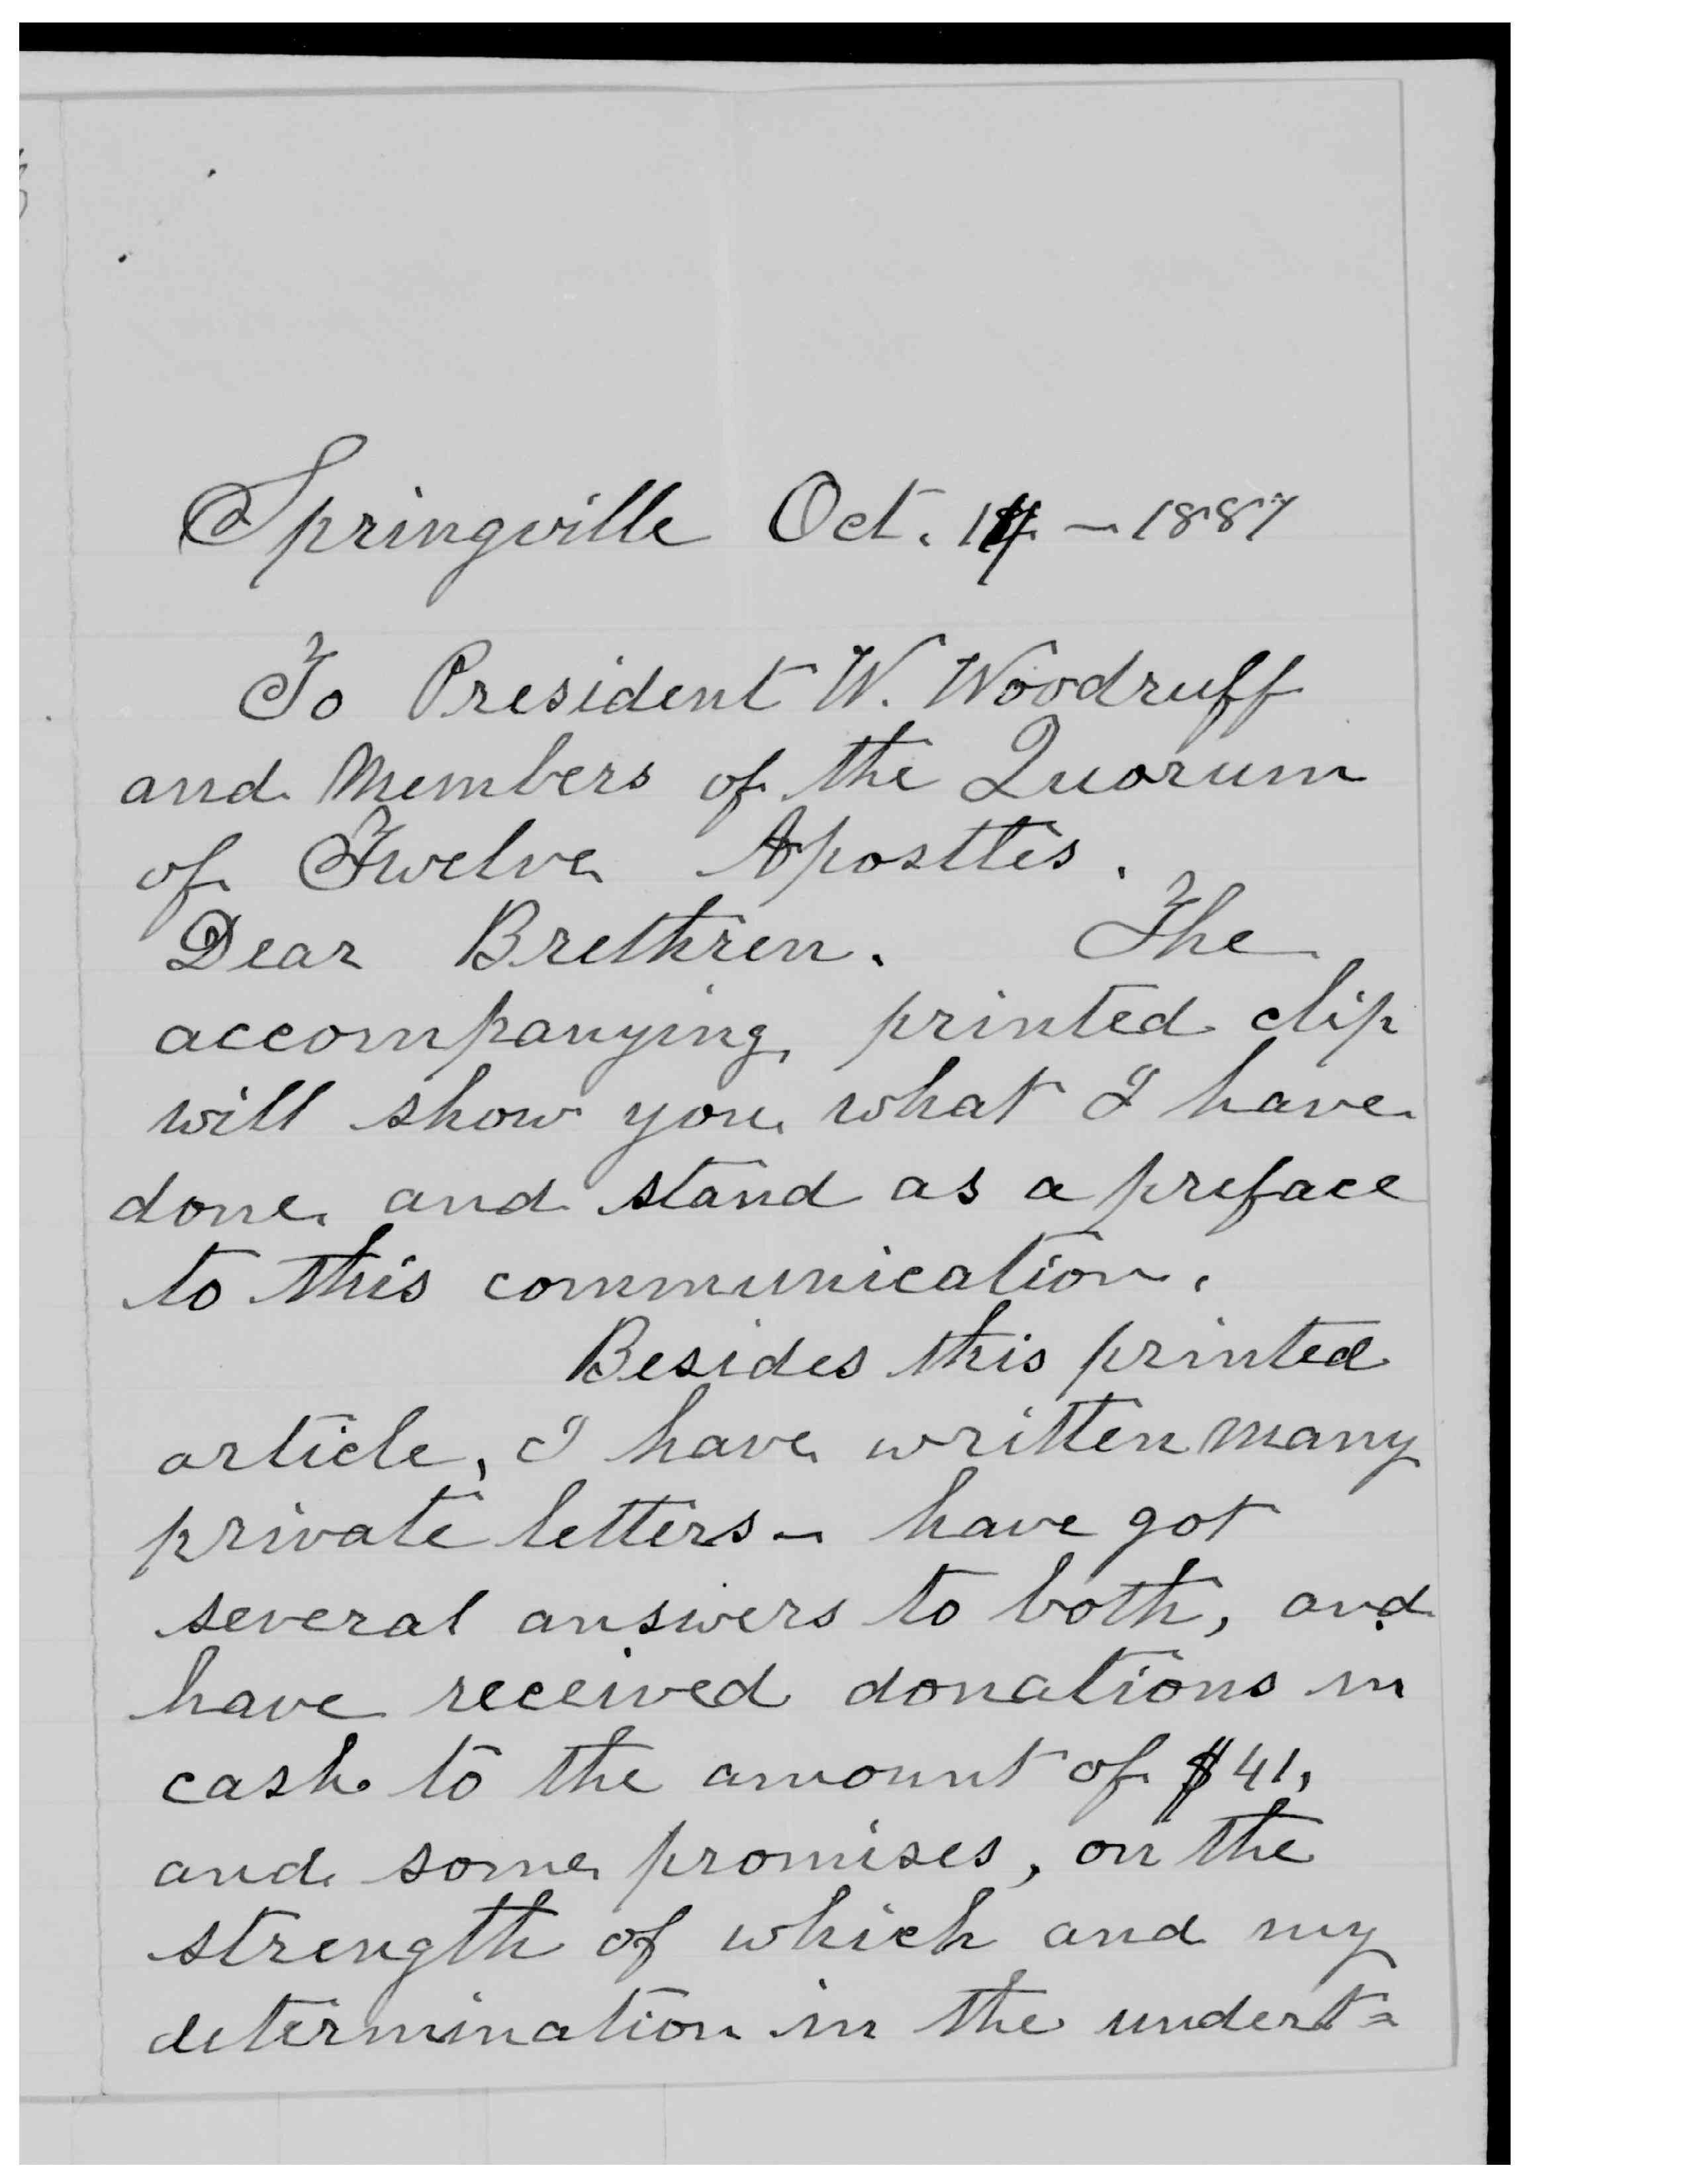 Springville Oct. 14 - 1887
To President W. Woodruff
and Members of the Quorum
of Twelve Apostles.
Dear Brethren. The
accompanying printed clip
will show you what I have
done and stand as a preface
to this communication.
Besides this printed
article, I have written many
private letters - have got
several answers to both, and
have received donations in
cash to the amount of $41,
and some promises, on the
strength of which and my
determination in the undert=